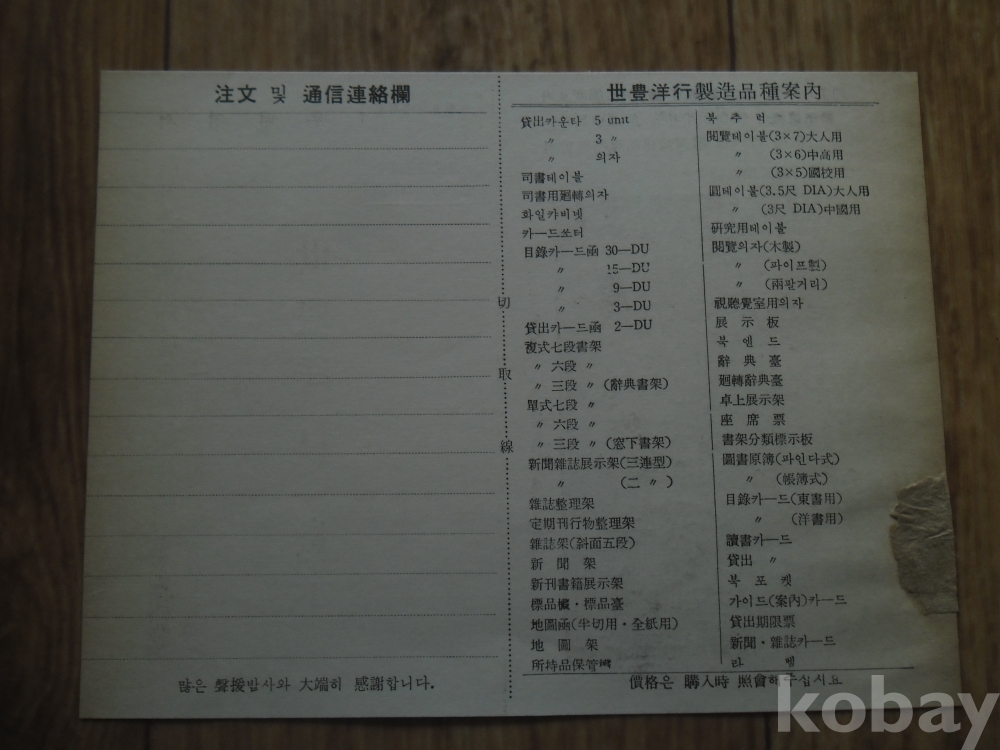 注文 및 通信連絡欄
많은 聲援밥사와 大端히 感謝합니다.
切取線
世豊洋行製造品種案內
貸出카운타 5 unit
〃 3 〃
〃 의자
司書테이블
司書用廻轉의자
화일캬비넷
카ー드쏘터
目錄카ー드函 30—DU
〃 15—DU
〃 9—DU
〃 3—DU
貸出카ー드函 2—DU
複式七段書架
〃 六段 〃
〃 三段 〃 (辭典書架)
單式七段 〃
〃 六段 〃
〃 三段 〃 (窓下書架)
新聞雜誌展示架(三連型)
〃 (二 〃 )
雜誌整理架
定期刊行物整理架
雜誌架(斜面五段)
新 聞 架
新刊書籍展示架
標品欌・標品臺
地圖函(半切用・全紙用)
地 圖 架
所持品保管欌
북 추 럭
閱覽테이블(3×7)大人用
〃 (3×6)中高用
〃 (3×5)國校用
圓테이블(3.5尺 DIA)大人用
〃 (3尺 DIA)中國用
硏究用테이블
閱覽의자(木製)
〃 (파이프製)
〃 (兩팔거리)
視聽覺室用의자
展 示 板
북 엔 드
辭 典 臺
廻轉辭典臺
卓上展示架
座 席 票
書架分類標示板
圖書原簿(파인다式)
〃 (帳簿式)
目錄카ー드(東書用)
〃 (洋書用)
讀書카ー드
貸出 〃
북 포 켓
가이드(案內)카ー드
貸出期限票
新聞・雜誌카ー드
라 벨
價格은 購入時 照會해주십시요
kobay